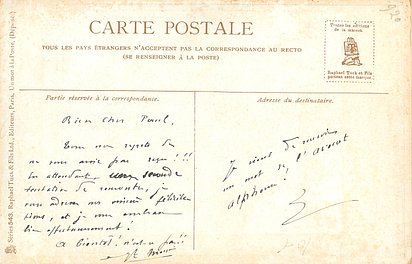 CARTE POSTALE
TOUS LES PAYS ÉTRANGERS N'ACCEPTENT PAS LA CORRESPONDANCE AU RECTO
(SE RENSEIGNER À LA POSTE)
Toutes les éditions
de la maison
Raphael Tuck et Fils
portent cette marque
Partie réservée à la correspondance.
Bien cher Paul,
Tous nos regrets de
ne vous avoir pas !!!
En attendant, une seconde
tentative de rencontre, je
vous adresse nos félicita
tions, et je vous embrasse
bien affectueusement!
A bientôt! n'est-ce pas!!
Adresse du destinataire.
Je viens de recevoir
un mot de l'avocat
alphonse!
Série 843. Raphael Tuck & Fils Ltd., Editeurs, Paris.